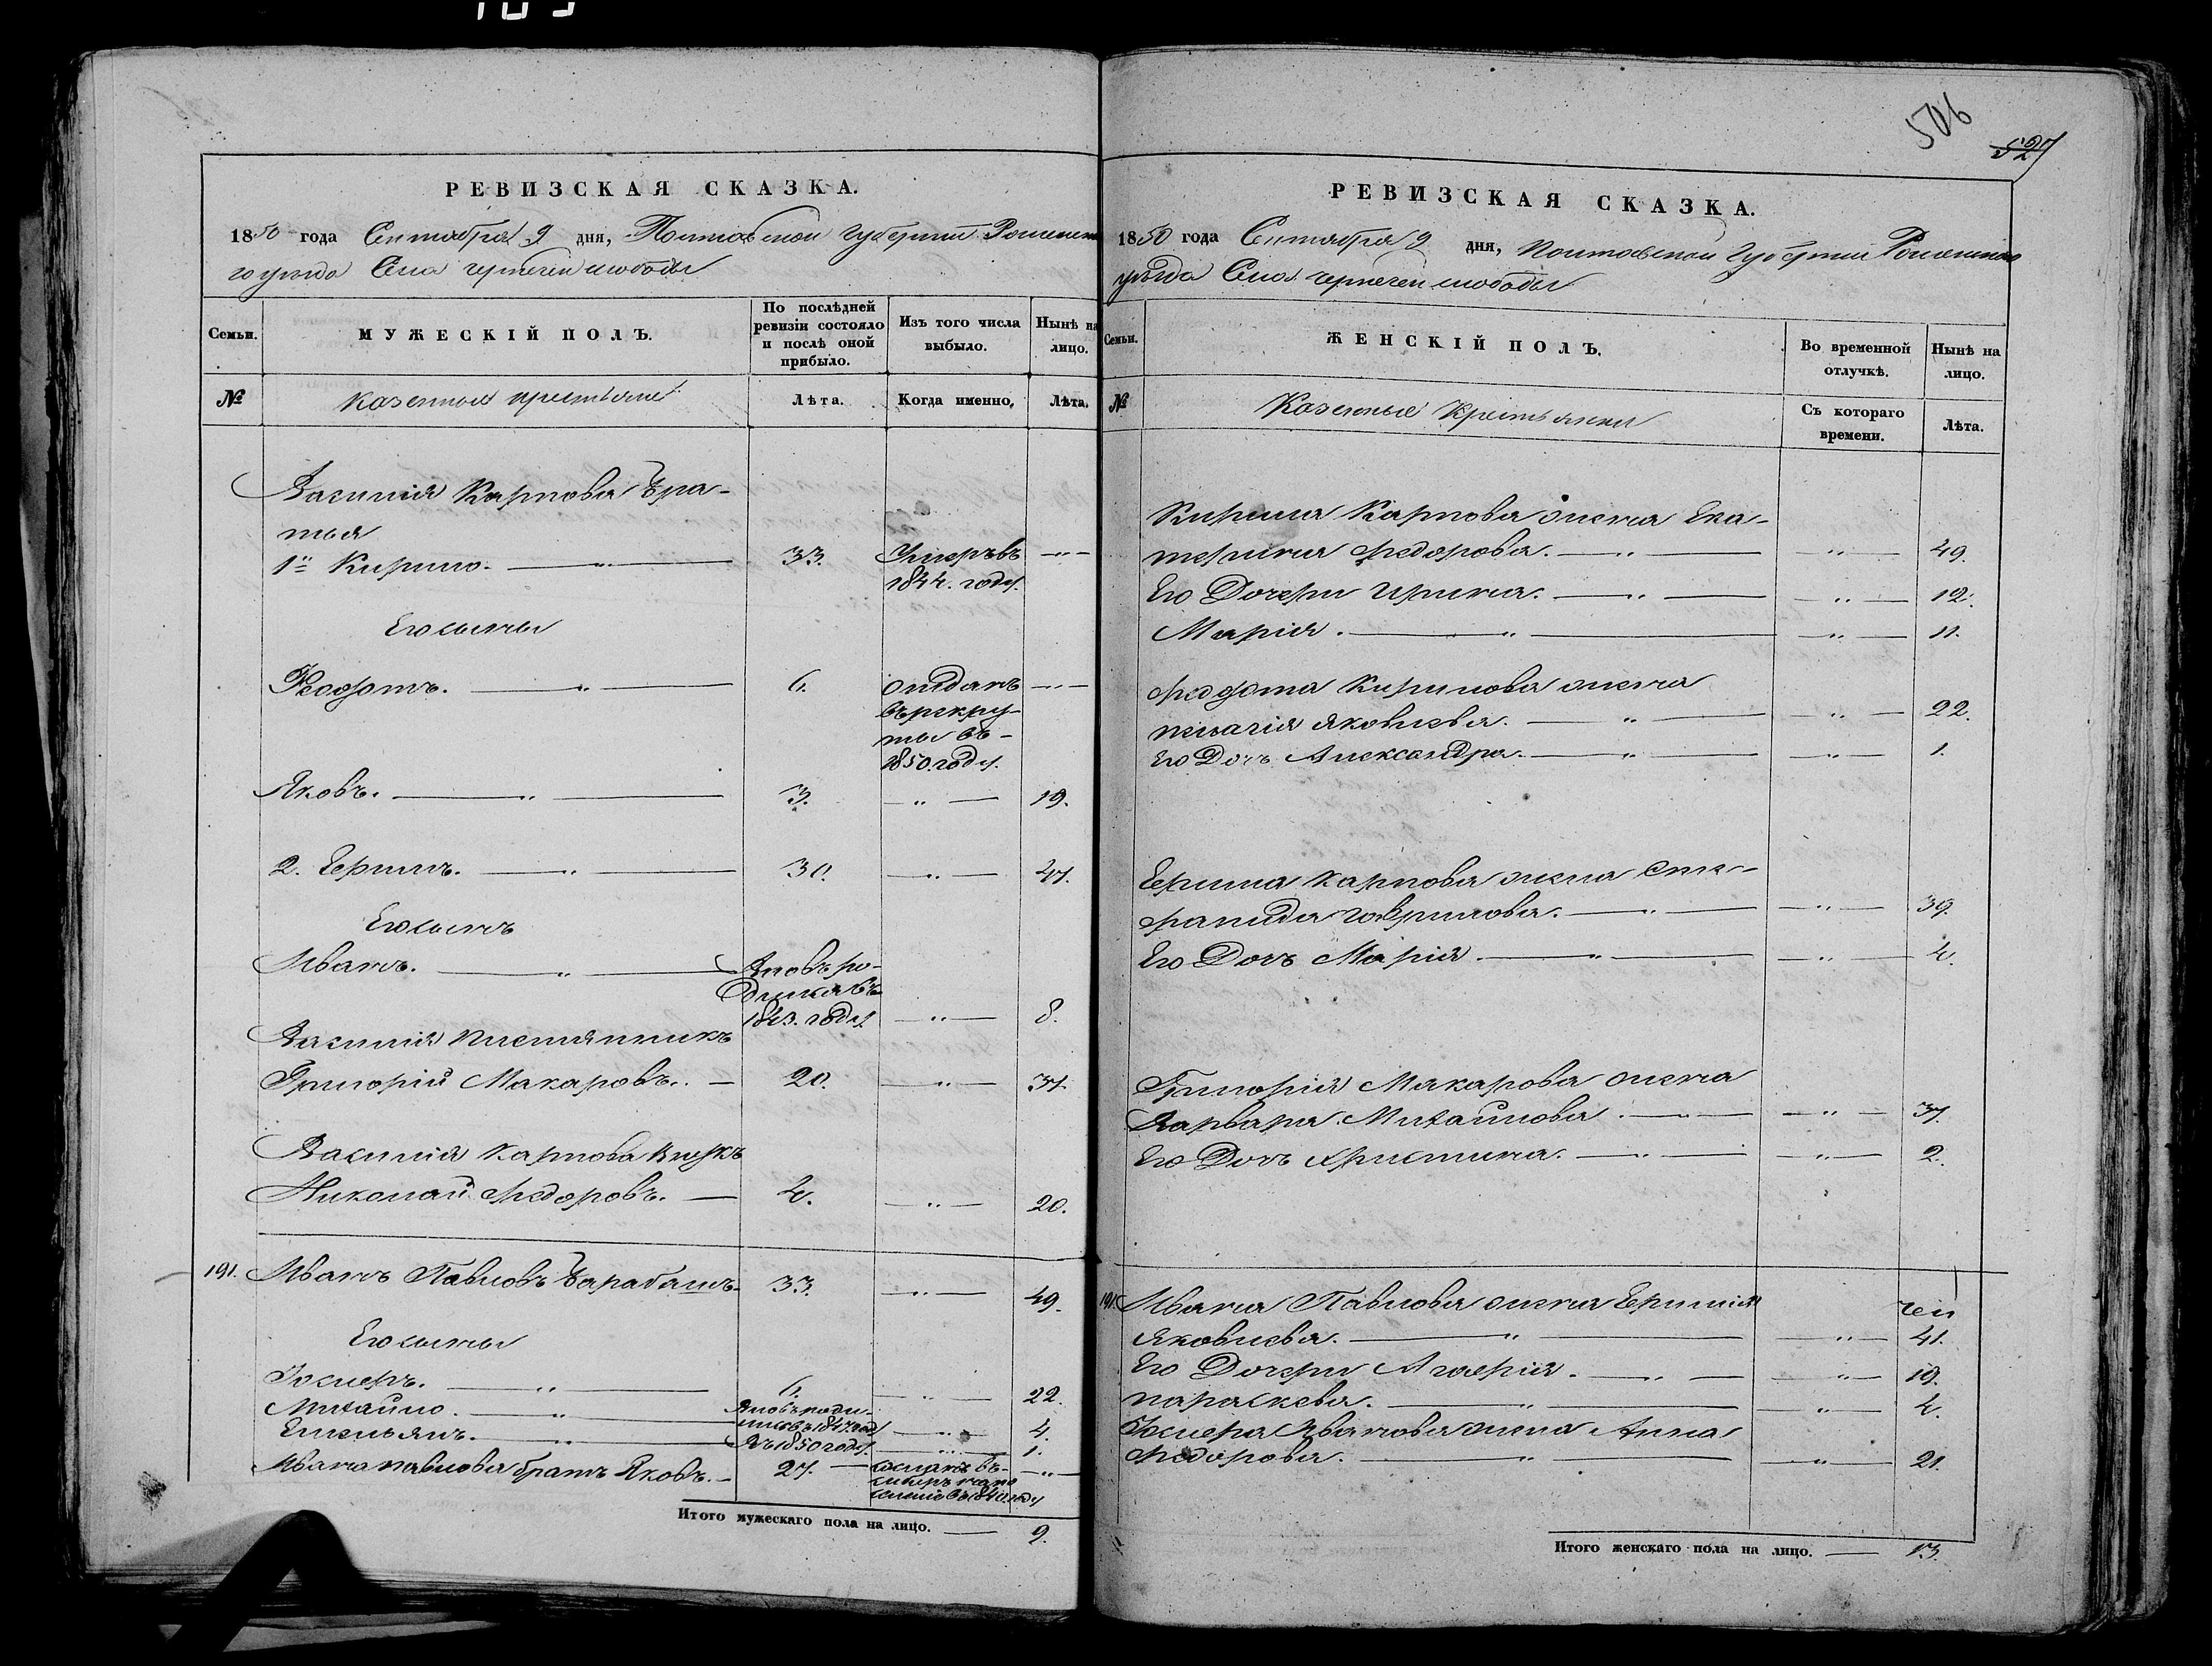 РЕВИЗСКАЯ СКАЗКА.
1850 года Сентября 9 дня, Полтавской Губернии Роменска
го уезда Села
Семьи.
МУЖЕСКІЙ ПОЛЪ.
По послѣдней
ревизіи состояло
и послѣ оной
прибыло.
Изъ того числа
выбыло.
Нынѣ на
лицо.
№
Казенныя крестьяне
Лѣта.
Когда именно,
Лѣта.
Василія Карпова бра-
тья
1й Кирило. 33. Умеръ въ
1844. году.
Его сыны
Феодотъ. 6. отданъ
въ рекру-
ты въ
1850. году.
Яковъ. 3. 19.
2. Герцилъ. 30. 47.
Его сынъ
Иванъ. Вновь ро-
дился въ
1843. году 8.
Василія племянникъ
Григорій Макаровъ. 20. 37.
Василія Карпова внукъ
Николай Федоровъ. 4. 20.
191. Иванъ Павловъ Барабашъ 33. 49.
Его сыны
Іосифъ. 6. 22.
Михайло. Вновь роди-
лся въ 1847. год 4.
Емельянъ. Въ 1850 году. 1.
Ивана Павлова братъ Яковъ. 27. сосланъ въ
сибирь на по
селеніе въ 1840 году
Итого мужескаго пола на лицо. 9.
506
527
РЕВИЗСКАЯ СКАЗКА.
1850 года Сентября 9 дня, Полтавской Губернии Роменскаго
уѣзда Села
Семьи.
ЖЕНСКІЙ ПОЛЪ.
Во временной
отлучкѣ.
Нынѣ на
лицо.
№
Казенные Крестьянки
Съ котораго
времени.
Лѣта.
Кирила Карпова жена Ека-
терина Федорова. 49.
Его Дочери Ирина. 12.
Марія. 11.
Федота Кирилова жена
Пелагія Яковлева. 22.
Его Дочь Александра. 1.
Карпова жена Сте-
фанида Гаврилова. 39.
Его Дочь Марія 4.
Григорія Макарова жена
Варвара Михайлова 37.
Его Дочь Христина. 2.
191. Ивана Павлова жена
Яковлева. 41.
Его Дочери Агафія. 19.
Параскева. 4.
Іосифа Иванова жена Анна
Федорова. 21.
Итого женскаго пола на лицо. 13.